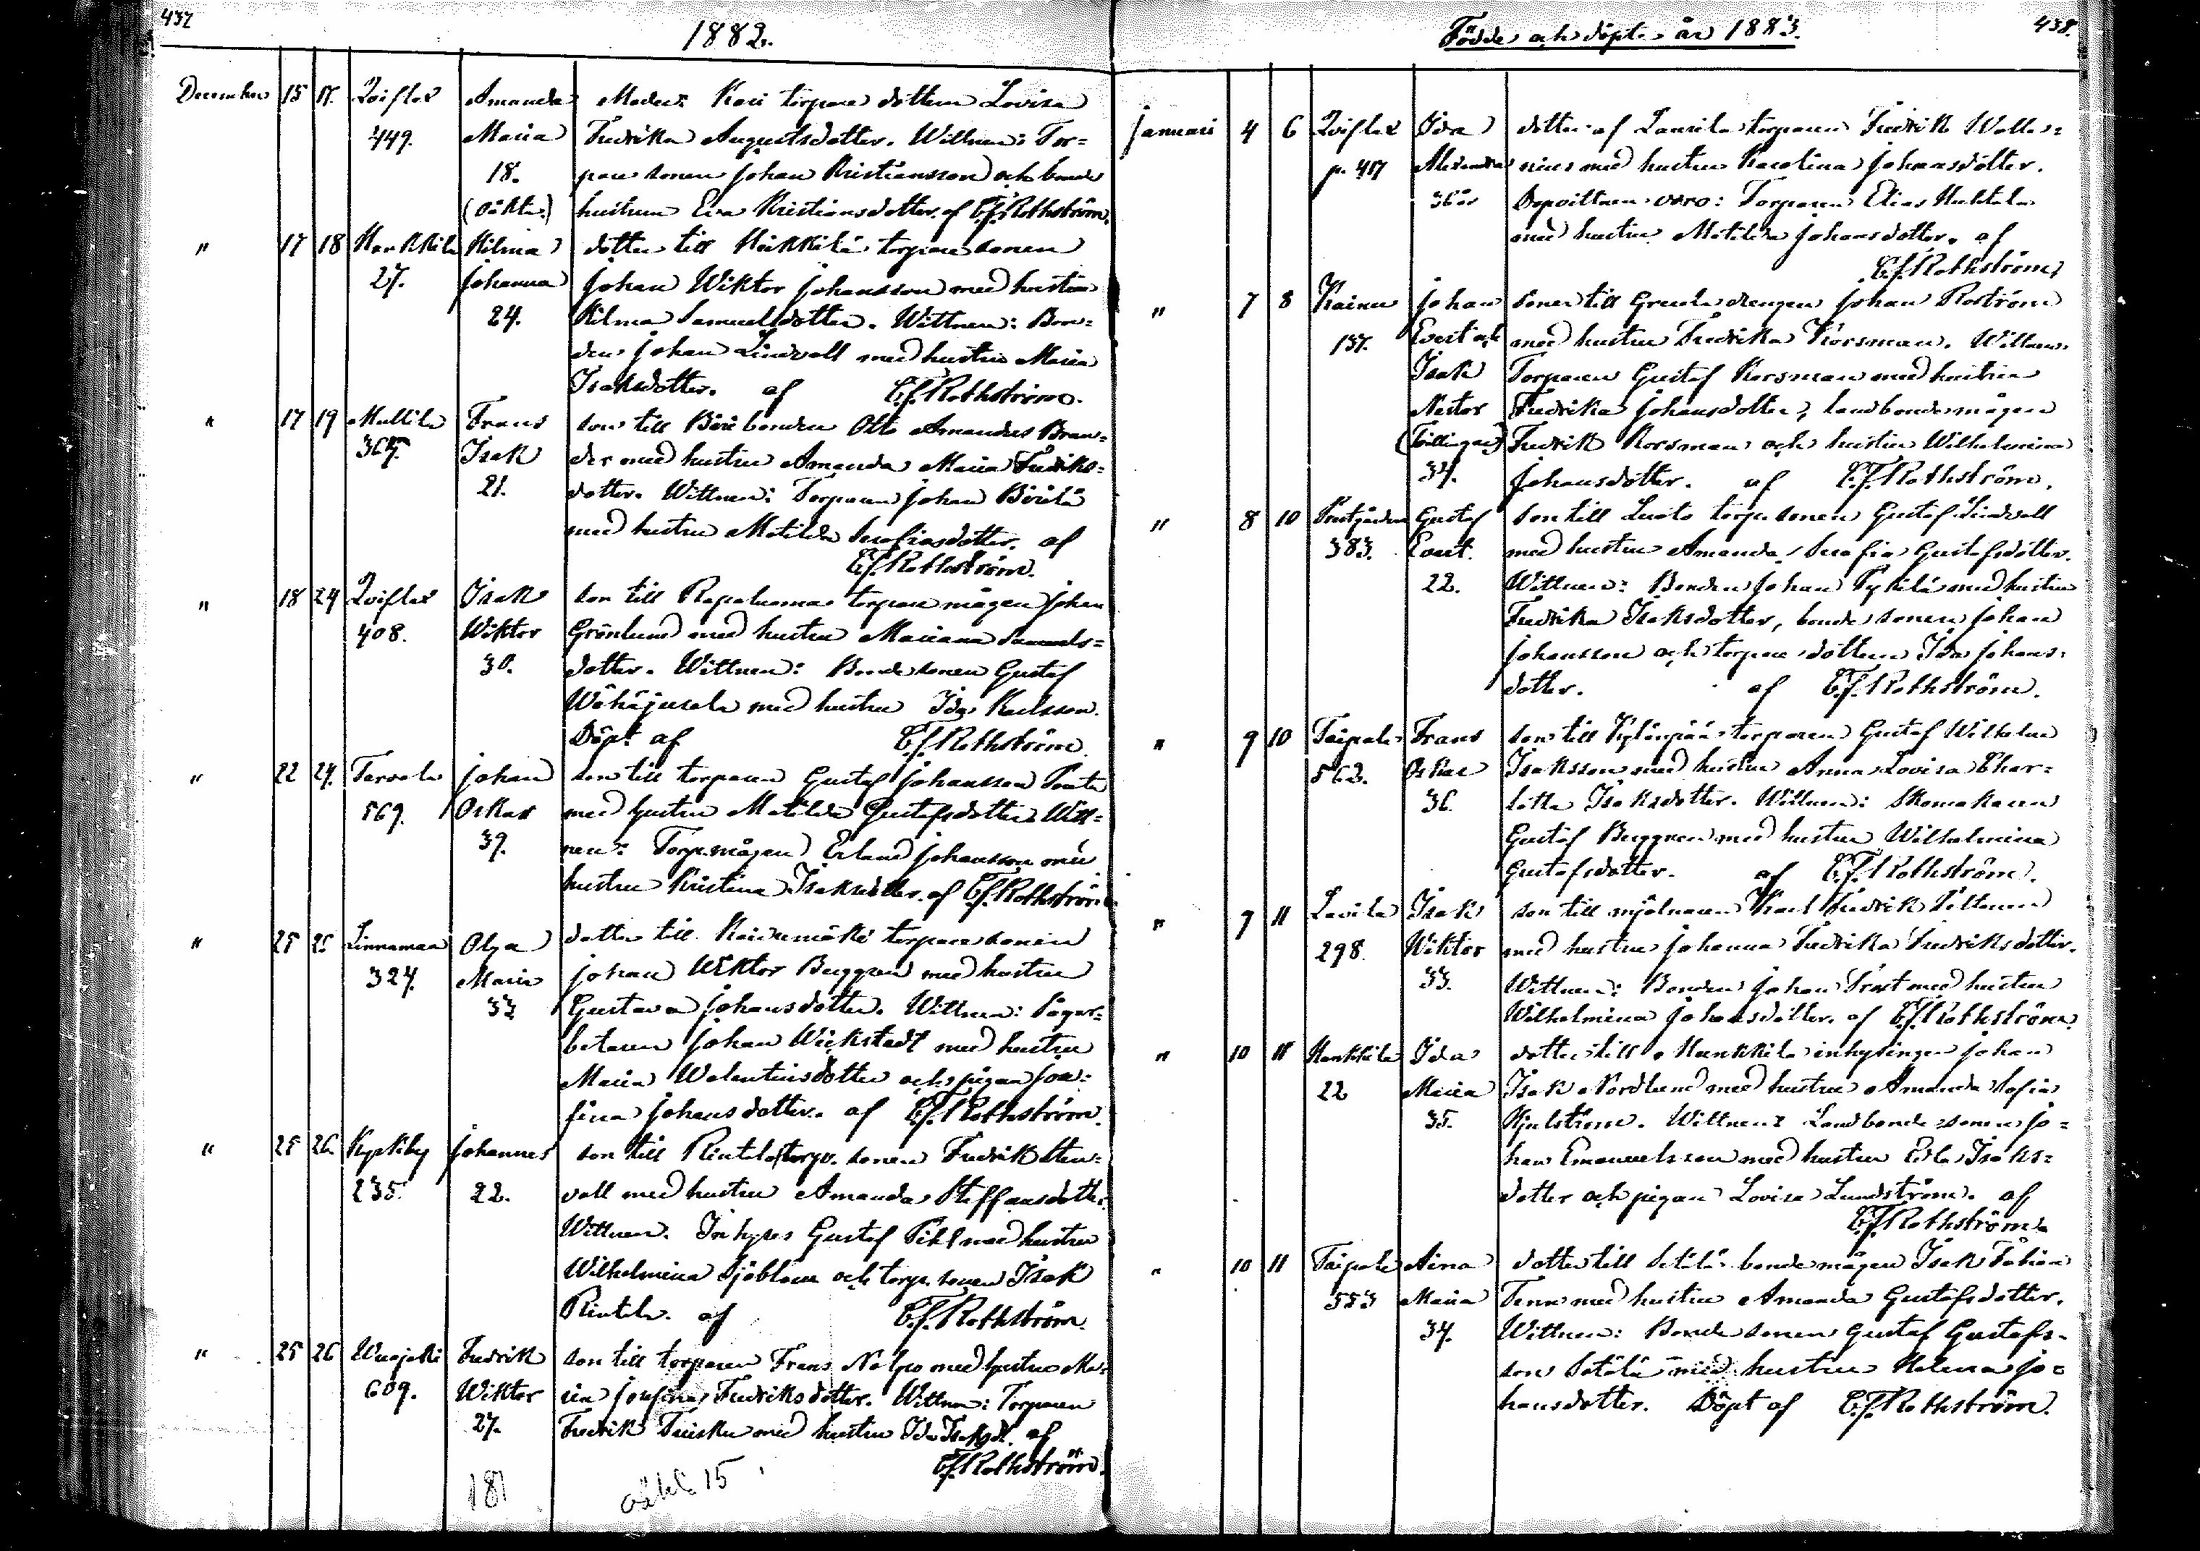 437
1882.
December 15 17. Loifler Amanda Moder: Kari torpare dottern Lovisa
449. Maria Fredrika Augustsdotter. Wittnen: Tor=
18. pare sonen Johan Kristiansson och bonde
(oäkta) hustrun Eva Kristiansdotter. af C.f. Rothström.
" 17 18 Hankkila Hilma dotter till Häkkilä torpare sonen
27. Johanna Johan Wiktor Johansson med hustru
24. Hilma Samuelsdotter. Wittnen: Bon=
den Johan Lindroll med hustru Maria
Isaksdotter. af C.f. Rothström.
" 17 19 Mullila Frans son till bonden Otto Amandus Bran=
Isak der med hustru Amanda Maria Fredriks=
21. dotter. Wittnen: Torparen Johan
med hustru Matilda Serafiasdotter. af
C.f. Rothström.
" 18 24 Loifler Isak son till torpare mågen Johan
408. Wiktor Grönlund med hustru Mariana Samuels=
30. dotter. Wittnen: Bonde sonen Gustaf
Wähäjusela med hustru Ida Karlsson.
Döpt af C.f. Rothström.
" 22 24. Tarvola Johan son till torparen Gustaf Johansson
569. Oskar med hustru Matilda Gustafsdotter. Witt=
39. nen: Torp.mågen Erland Johansson med
hustru Kristina Isaksdotter. af C.f. Rothström
" 25 25 Linnamaa Olga dotter till torpare sonen
324. Maria Johan Wiktor Berggren med hustru
33 Gustava Johansdotter. Wittnen: Sågar=
betaren Johan Wickstedt med hustru
Maria Walentinsdotter och pigan Jos=
fina Johansdotter. af C.f. Rothström.
" 25 26. Kyrkby Johannes son till Rintala torp. sonen Fredrik Sten=
235. 22. vall med hustru Amanda Steffansdotter
Wittnen. Inhyses Gustaf Pihl med hustru
Wilhelmina Sjöblom och torp. sonen Isak
Rintala. af C.f. Rothström.
" 25 26 Wuojoki Fredrik son till torparen Frans Nalpo med hustru Ma=
609. Wiktor ria Josefina Fredriksdotter. Wittnen: Torparen
27. Fredrik med hustru Ida Isaksd. af
C.f. Rothström.
181 oäkt. 15
Födde och döpte år 1883.
438.
Januari 4 6 Loifler Ida dotter af Laurila torparen Fredrik Walle=
p. 417 Alexandra nius med hustru Karolina Johansdotter.
36 år Dopvittnen voro: Torparen Elias Huhtala
med hustru Matilda Johansdotter. af
C.f. Rothström,
" 7 8 Kainu Johan söner till Greula drengen Johan Roström
137. Evert och med hustru Fredrika Korsman. Wittnen.
Isak Torparen Gustaf Korsman med hustru
Nestor Fredrika Johansdotter, landbonde mågen
(Tvillingar) Fredrik Korsman och hustru Wilhelmina
34. Johansdotter. af C.f. Rothström.
" 8 10 Prestgården Gustaf son till Lusto torp. sonen Gustaf Lindvall
383. Evert. med hustru Amanda Serafia Gustafsdotter.
22. Wittnen: Bonden Johan Pykilä med hustru
Fredrika Isaksdotter, bonde sonen Johan
Johansson och torpare dottern Ida Johans=
dotter. af C.f. Rothström.
" 9 10 Taipale Frans son till Kylänpää torparen Gustaf Wilhelm
562. Oskar Isaksson med hustru Anna Lovisa Char=
36. lotta Isaksdotter. Wittnen: Skomakaren
Gustaf Berggren med hustru Wilhelmina
Gustafsdotter. af C.f. Rothström.
" 9 11 Lavila Isak son till mjölnaren Karl Fredrik Peltonen
298. Wiktor med hustru Johanna Fredrika Fredriksdotter.
33. Wittnen: Bonden Johan Prost med hustru
Wilhelmina Johansdotter. af C.f. Rothström.
" 10 11 Hankkila Ida dotter till Hankkila inhysingen Johan
22 Maria Isak Nordlund med hustru Amanda Sofia
35. Hjulström. Wittnen: Landbonde sonen Jo=
han Emanuelsson med hustru Eva Isaks=
dotter och pigan Lovisa Lundström. af
C.f. Rothström.
" 10 11 Taipale Aina dotter till Setälä bonde mågen Isak Fabian
553 Maria Tenn med hustru Amanda Gustafsdotter.
34. Wittnen: Bonde sonen Gustaf Gustafs=
son Setälä med hustru Helena Jo=
hansdotter. Döpt af C.f. Rothström.